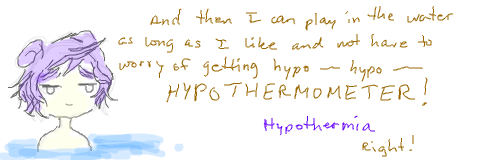 And then I can play in the water
as long as I like and not have to
worry of getting hypo — hypo —
HYPOTHERMOMETER!
Hypothermia
Right!